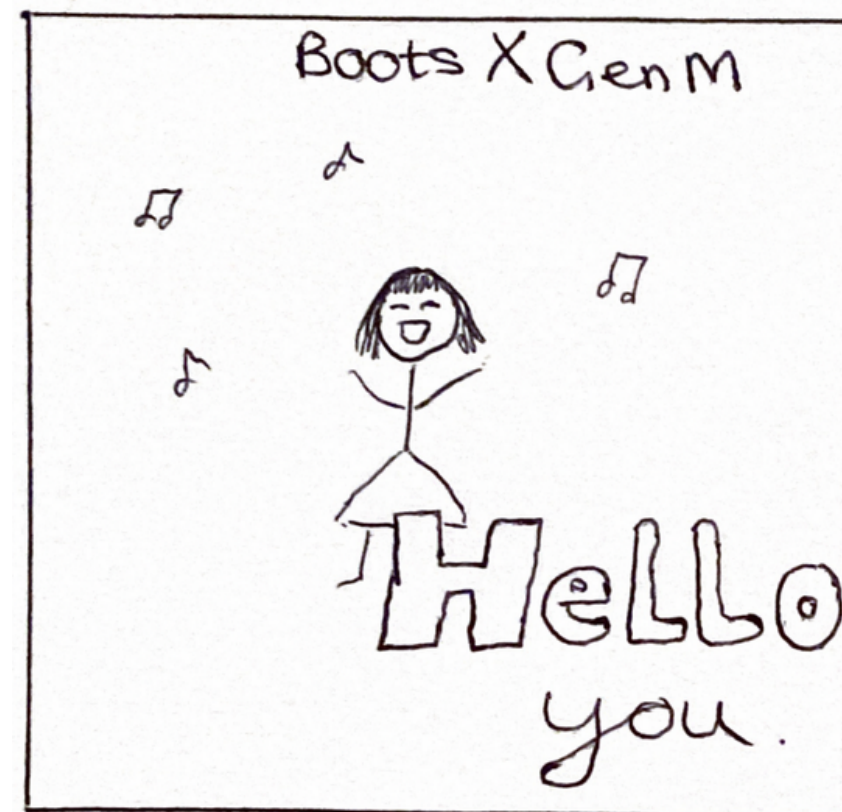 Boots X Gen M
HeLLo
you.